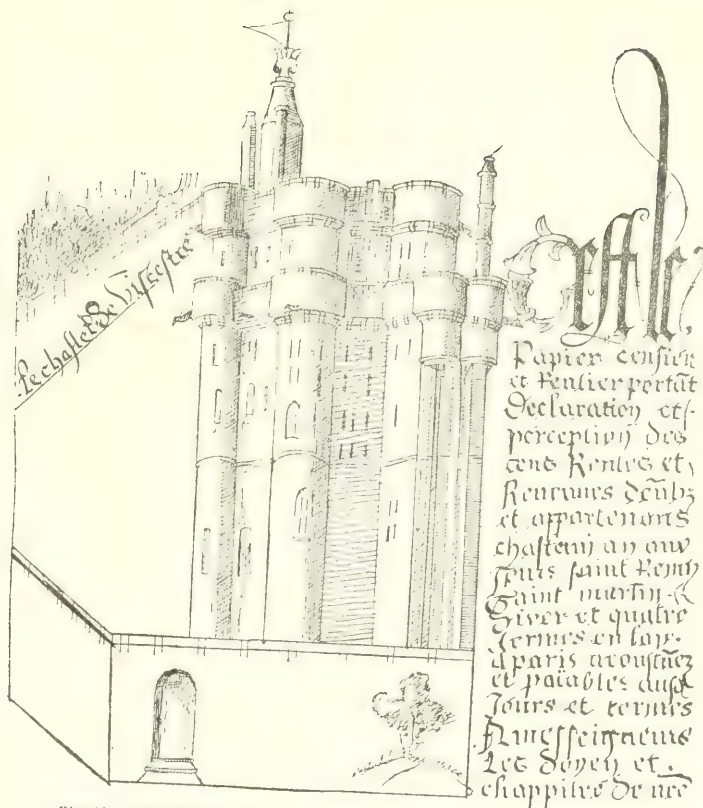 Le chastel de Vissestre
Cest le,
Papier censier
et Rentier portãt
Declaration et
perception des
cens Rentes et
Revenues deubz
et appartenans
chascun an aux
Jours saint Remy
Saint martin
diver et quatre
termes en lan.
a paris acoustumez
et paiables ausd
Jours et termes
A messeigneurs
Les doyen et
chappitre de nre